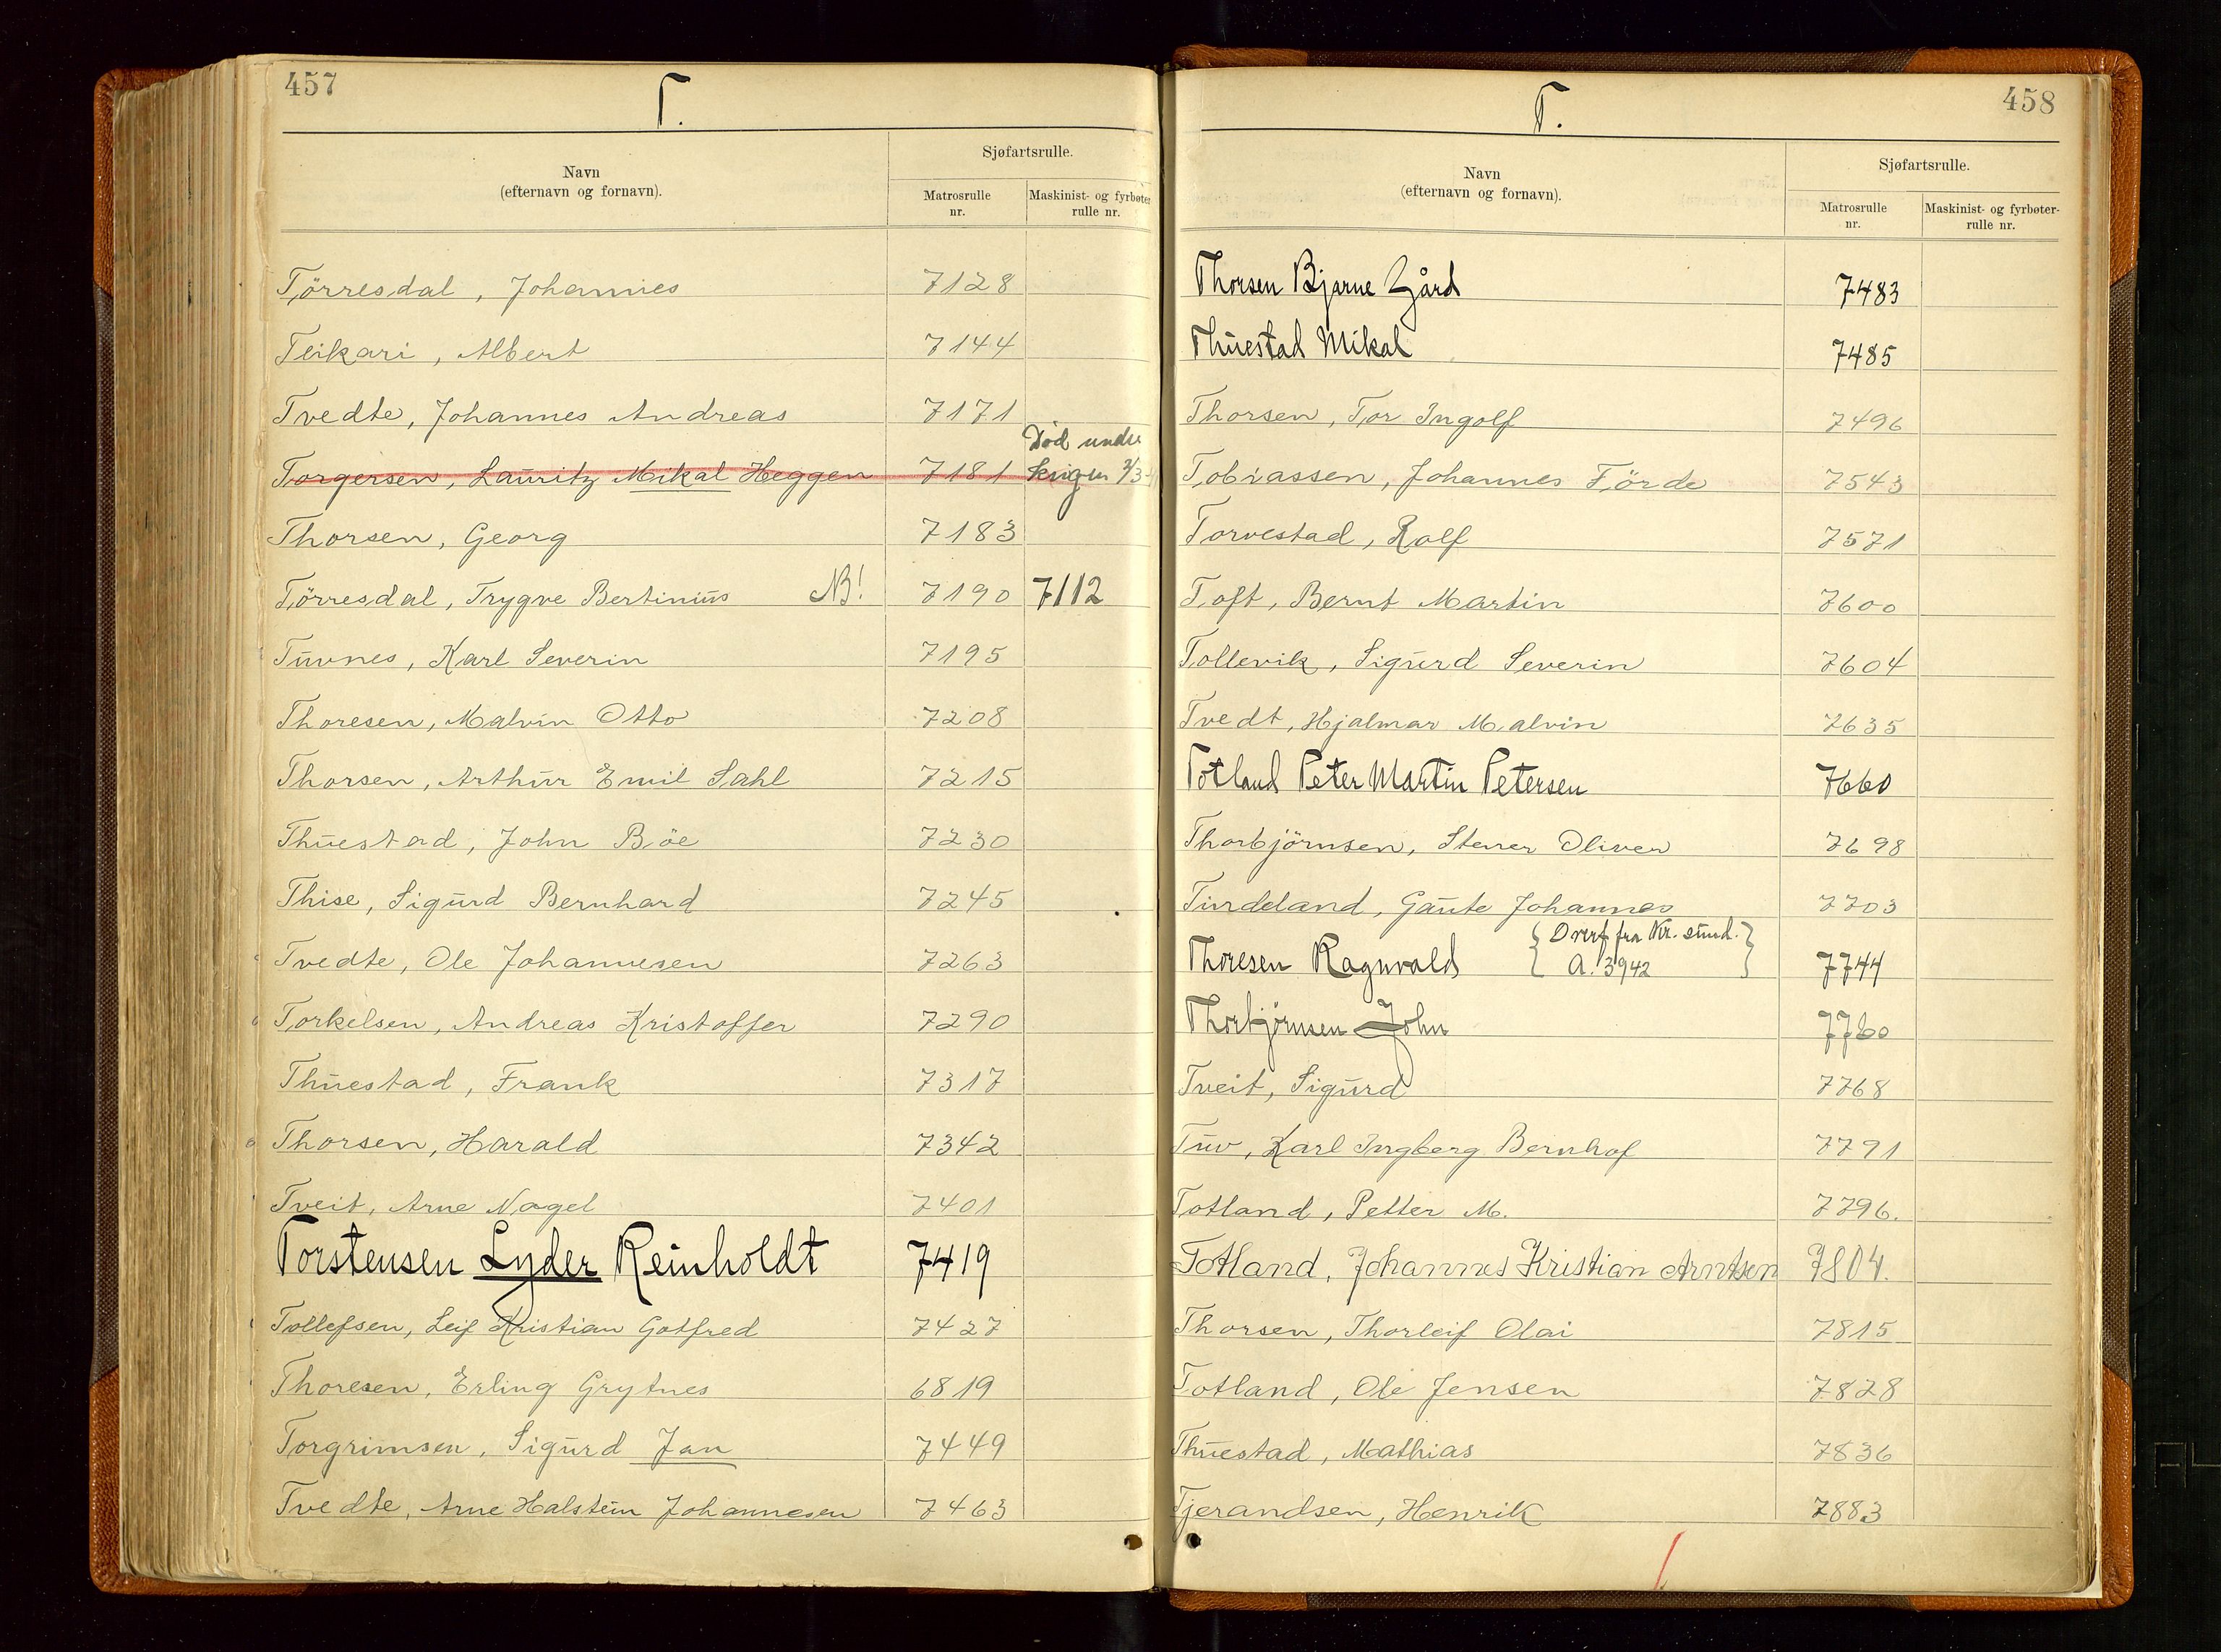 457
T.
Navn
(efternavn og fornavn).
Sjøfartsrulle.
Matrosrulle
nr.
Maskinist- og fyrbøter
rulle nr.
Törresdal, Johannes 7128
Teikari, Albert 7144
Tvedte, Johannes Andreas 7171
Død under
Torgersen, Lauritz Mikal Heggen 7181 krigen 2/3-
Thorsen, Georg 7183
Törresdal, Trygve Bertinius NB! 7190 7112
Tuvnes, Karl Severin 7195
Thoresen, Malvin Otto 7208
Thorsen, Arthur Emil Sahl 7215
Thuestad, John Böe 7230
Thise, Sigurd Bernhard 7245
Tvedte, Ole Johannesen 7263
Torkelsen, Andreas Kristoffer 7290
Thuestad, Frank 7317
Thorsen, Harald 7342
Tveit, Arne Nagel 7401
Torstensen Lyder Reinholdt 7419
Tollefsen, Leif Kristian Gotfred 7427
Thoresen, Erling Grytnes 6819
Torgrimsen, Sigurd Jan 7449
Tvedte, Arne Halstein Johannesen 7463
458
T.
Navn
(efternavn og fornavn).
Sjøfartsrulle.
Matrosrulle
nr.
Maskinist- og fyrbøter-
rulle nr.
Thorsen Bjarne Gård 7483
Thuestad Mikal 7485
Thorsen, Tor Ingolf 7496
Tobiassen, Johannes Förde 7543
Torvestad, Rolf 7571
Toft, Bernt Martin 7600
Tollevik, Sigurd Severin 7604
Tvedt, Hjalmar Malvin 7635
Totland Peter Martin Petersen 7660
Thorbjörnsen, Stener Oliver 7698
Tindeland, Gaute Johannes 7703
Overf fra Kr. sund.
Thoresen Ragnvald A. 3942 7744
Thorbjørnsen John 7760
Tveit, Sigurd 7768
Tuv, Karl Ingberg Bernhof 7791
Totland, Petter M. 7796.
Totland, Johannes Kristian Arntsen 7804.
Thorsen, Thorleif Olai 7815
Totland, Ole Jensen 7828
Thuestad, Mathias 7836
Tjerandsen, Henrik 7883